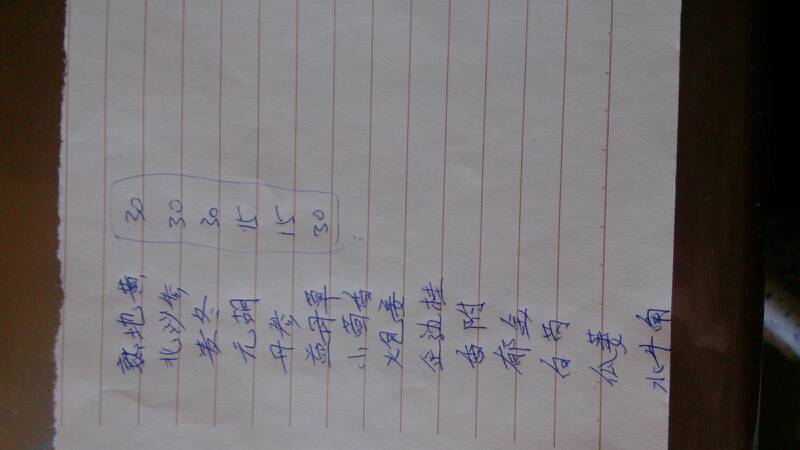 熟地黄 30
北沙参 30
麦冬 30
元胡 15
丹参 15
益母草 30
小茴香
炮姜
企边桂
香附
郁金
白芍
瓜蒌
水牛角